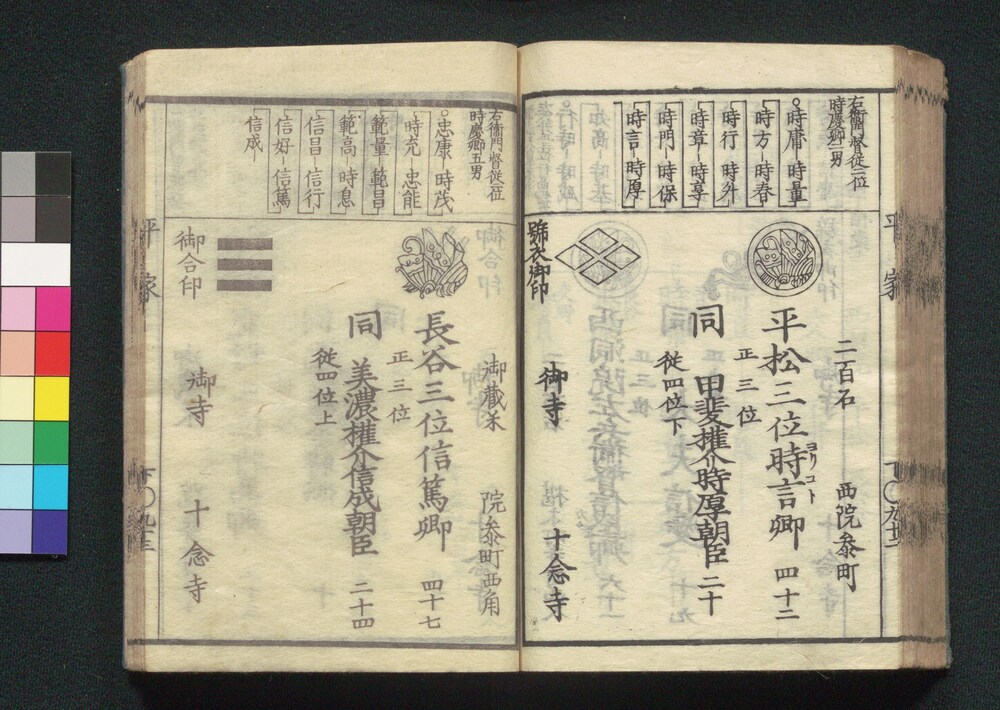 右衛門督従二位
時慶卿二男
時庸 時量
時方 時春
時行 時升
時章 時享
時門 時保
時言 時厚
二百石
西院参町
平松三位時言卿 四十二
ヨリコト
正三位
同 甲斐権介時厚朝臣 二十
従四位下
御寺 十念寺
平 家
右衛門督従二位
時慶卿五男
忠康 時茂
時充 忠能
範量 範昌
範高 時息
信昌 信行
信好 信篤
信成
御蔵米
院参町西角
長谷三位信篤卿 四十七
正三位
同 美濃権介信成朝臣 二十四
従四位上
御合印
御寺 十念寺
平 家